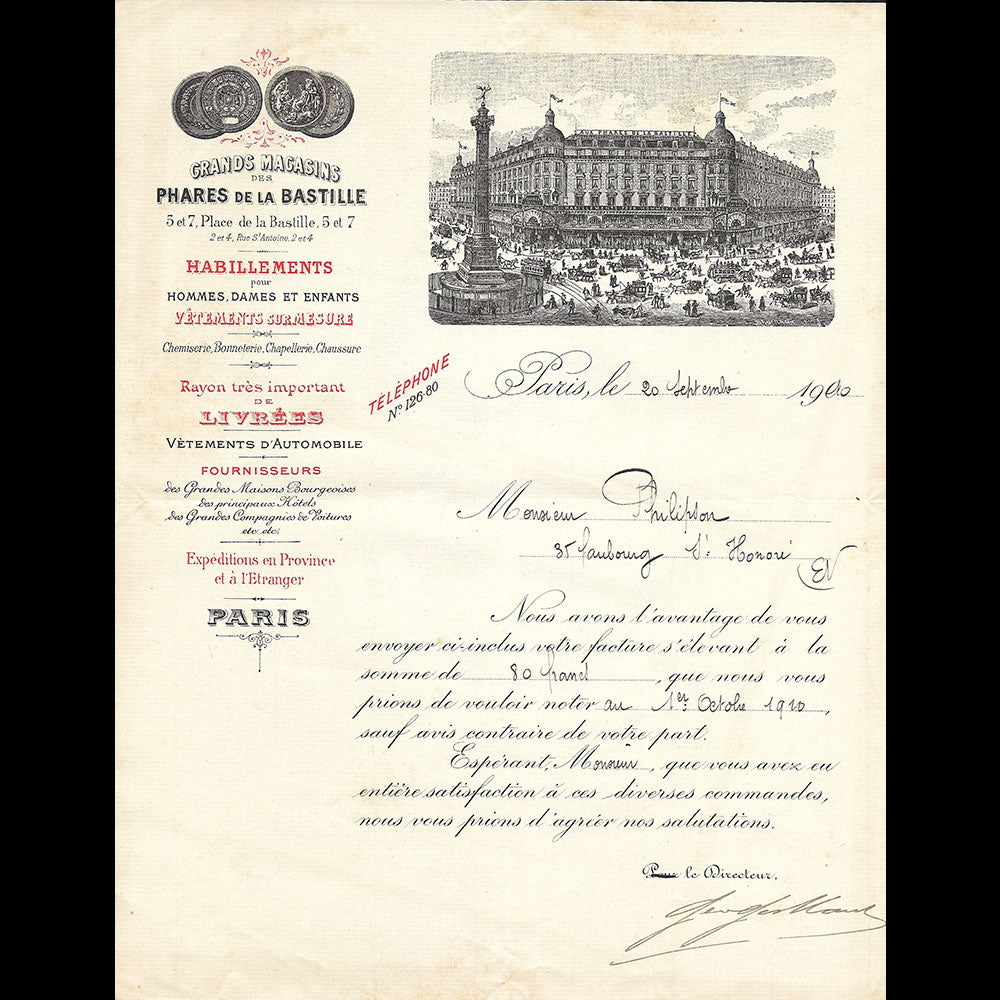 GRANDS MAGASINS
DES
PHARES DE LA BASTILLE
5 et 7, Place de la Bastille, 5 et 7
2 et 4, Rue St Antoine, 2 et 4
HABILLEMENTS
pour
HOMMES, DAMES ET ENFANTS
VÊTEMENTS SUR MESURE
Chemiserie, Bonneterie, Chapellerie, Chaussure
Rayon très important
DE
LIVRÉES
VÊTEMENTS D'AUTOMOBILE
FOURNISSEURS
des Grandes Maisons Bourgeoises
des principaux Hôtels
des Grandes Compagnies de Voitures
etc. etc.
Expéditions en Province
et à l'Etranger
PARIS
AUX PHARES DE LA BASTILLE
TÉLÉPHONE
No 126-80
Paris, le 20 Septembre 1900
Monsieur Philipson
35 faubourg St Honoré
EV
Nous avons l'avantage de vous
envoyer ci-inclus votre facture s'élevant à la
somme de 80 francs, que nous vous
prions de vouloir noter au 1er Octobre 1910,
sauf avis contraire de votre part.
Espérant, Monsieur, que vous avez eu
entière satisfaction à ces diverses commandes,
nous vous prions d'agréer nos salutations.
Pour le Directeur,